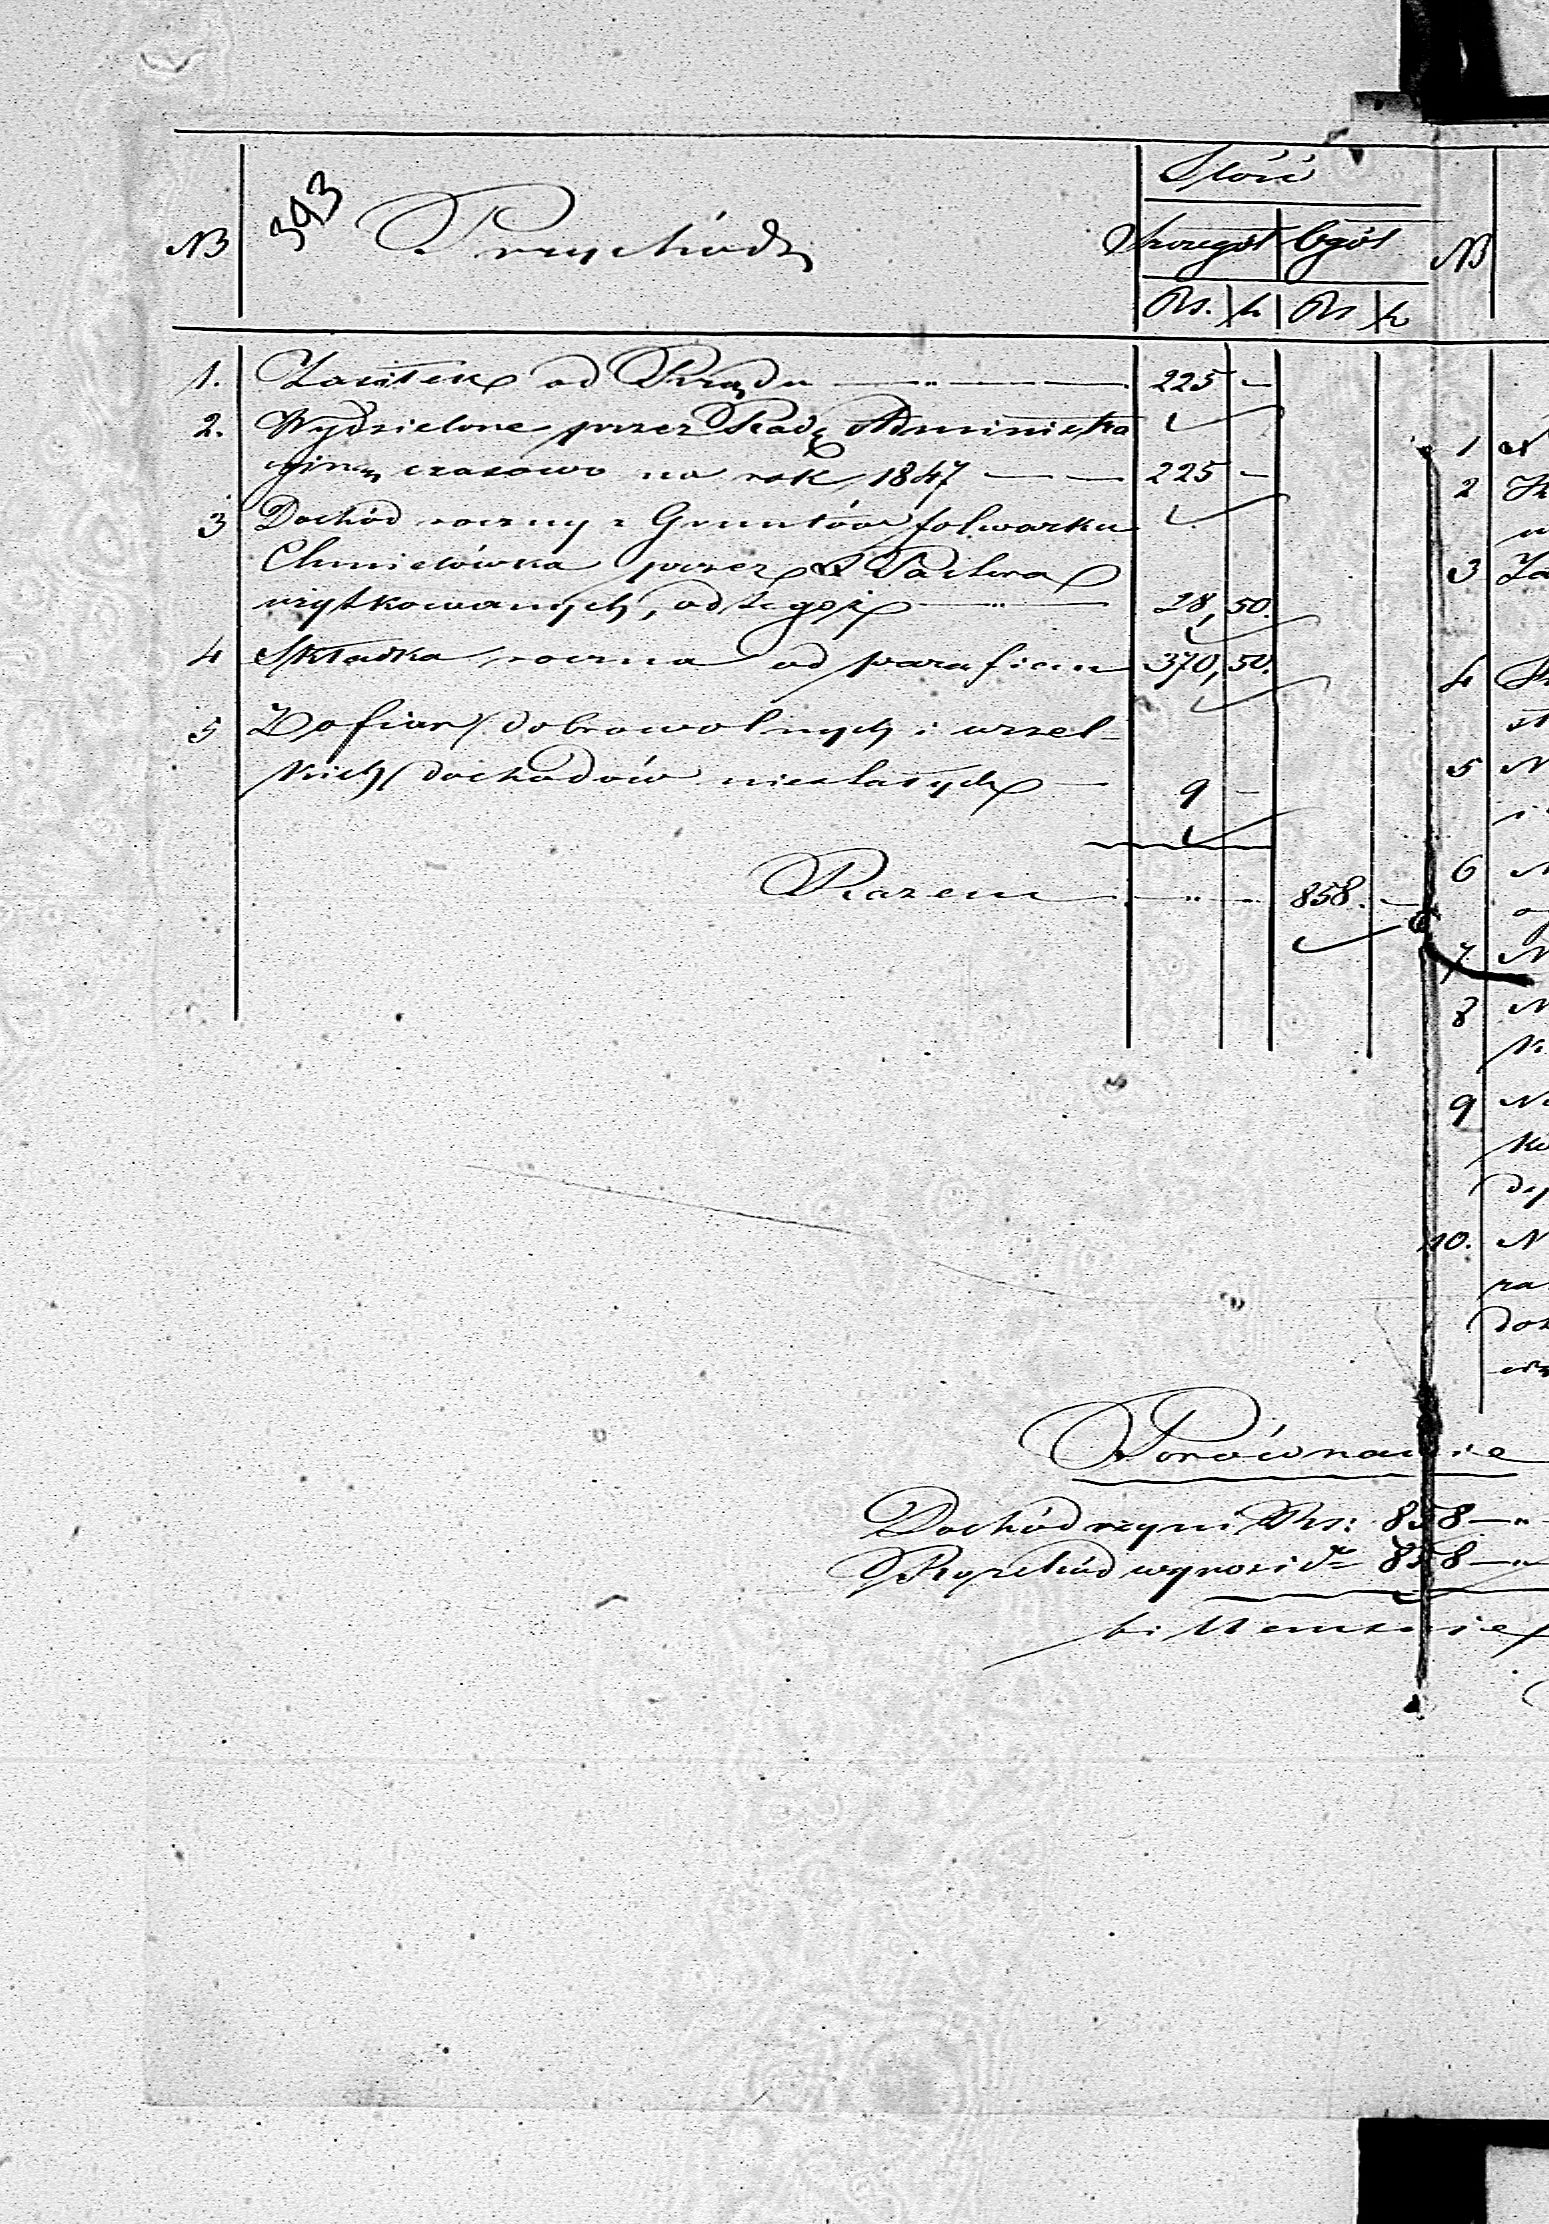 393
NB Przychód Ilość
Szczegół Ogół NB
Rs. k Rs k
1. Zasiłek od Rządu 225 -
2. Wydzielone przez Radę Administra
cyjną czasowo na rok 1847 225 -
3 Dochód roczny z Gruntów folwarku
Chmielówka przez
użytkowanych, od tegoż 28, 50.
4 Składka roczna od parafian 370, 50.
5 Z ofiar dobrowolnych i wszel-
kich dochodów niestałych 9 -
Razem 858. -
1
2
3
4
5
6
7
8
9
10.
Porównanie
Dochód czyni Rs: 858 - " -
Rozchód wynosi d° 858 - "